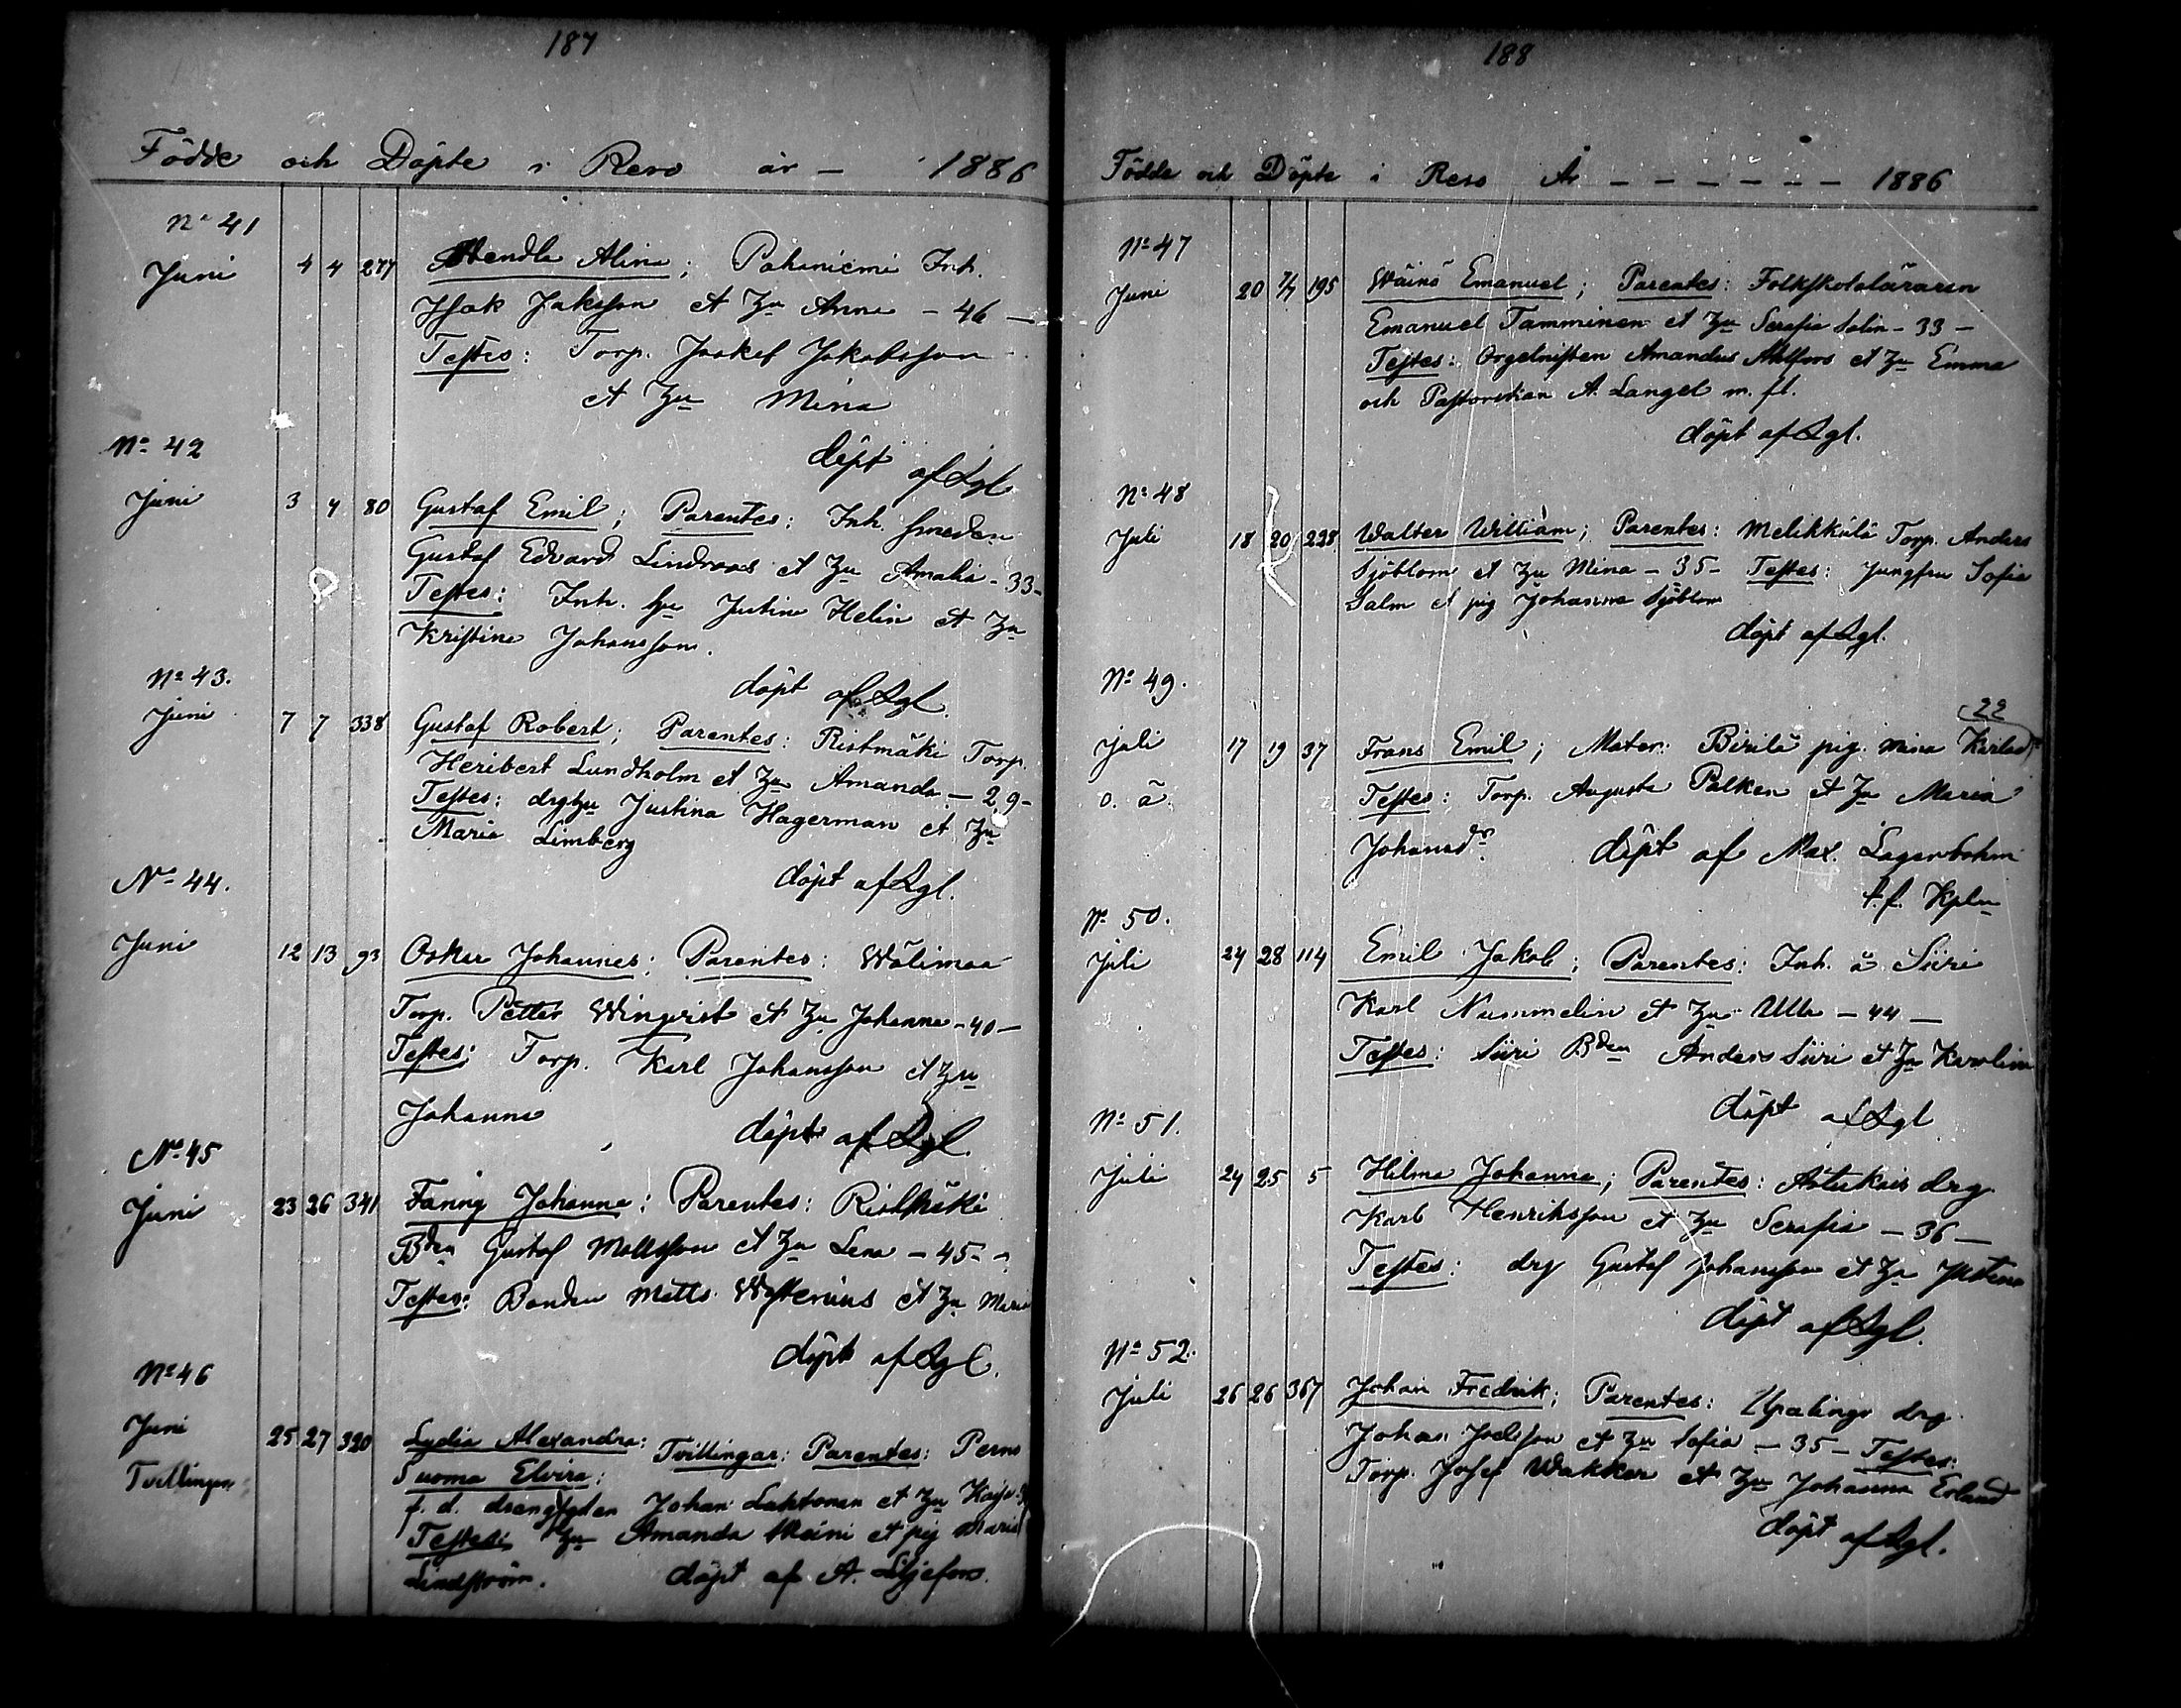 187
Födde och Döpte i Reso år — 1886
No 41
Juni 4 4 277 Wendla Alina; Pahaniemi Inh.
Isak Jakson et Hu Anna - 46 —
Testes: Torp. Josef Jakobsson
et Hu Mina
döpt af Lgl
No 42
Juni 3 4 80 Gustaf Emil; Parentes: Inh. smeden
Gustaf Edvard Lindroos et Hu Amalia - 33 -
Testes: Inh. hu Justina Helin et Hu
Kristina Johansson.
döpt af Lgl.
No 43.
Juni 7 7 338 Gustaf Robert; Parentes: Ristmäki Torp.
Heribert Lundholm et Hu Amanda — 29 -
Testes: drghu Justina Hagerman et Hu
Maria Limberg
döpt af Lgl.
No 44.
Juni 12 13 93 Oskar Johannes; Parentes: Wälimaa
Torp. Petter Winqvist et Hu Johanna - 40 —
Testes: Torp. Karl Johansson et Hu
Johanna döpt af Lgl.
No 45
Juni 23 26 341 Fanny Johanna; Parentes:
Bden Gustaf Mattsson et Hu Lena - 45 -
Testes: Bonden Matts Westerius et Hu Maria
döpt af Lgl.
No 46
Juni 25 27 320 Lydia Alexandra:
Tvillingar Suoma Elvira: Tvillingar: Parentes: Perno
f. d. drengen Johan Lahtonen et Hu Kajsa
Testes: Hu Amanda Wäini et pig Maria
Lindström. döpt af A. Liljefors.
188
Födde och Döpte i Reso År - - - - - - - 1886
No 47
Juni 20 7/7 195 Wäinö Emanuel; Parentes: Folkskoleläraren
Emanuel Tamminen et Hu Serafia Salin - 33 -
Testes: Orgelnisten Amandus Ahlfors et Hu Emma
och Pastorskan A. Langel m. fl.
döpt af Lgl.
No 48
Juli 18 20 228 Walter William; Parentes: Melikkälä Torp. Anders
Sjöblom et Hu Mina - 35 - Testes: Jungfru Sofia
Salm et pig Johanna Sjöblom
döpt af Lgl.
No 49.
22
Juli 17 19 37 Frans Emil; Mater: Birilä pig. Mina Karlsdr
o. ä. Testes: Torp. Augusta Palken et Hu Maria
Johansdr. döpt af Max. Lagerbohm
t.f. Kpln
No 50.
Juli 24 28 114 Emil Jakob; Parentes: Inh. å Siiri
Karl Nummelin et Hu Ulla - 44 —
Testes: Siiri Bden Anders Siiri et Hu Karolina
döpt af Lgl
No 51.
Juli 24 25 5 Hilma Johanna; Parentes: Artukais drg.
Karl Henriksson et Hu Serafia - 36 —
Testes: drg Gustaf Johansson et Hu Justina
döpt af Lgl.
No 52.
Juli 26 26 367 Johan Fredrik; Parentes: Upalinge drg.
Johan Joelsson et Hu Sofia - 35 - Testes:
Torp. Josef Wakker et Hu Johanna Erland
döpt af Lgl.